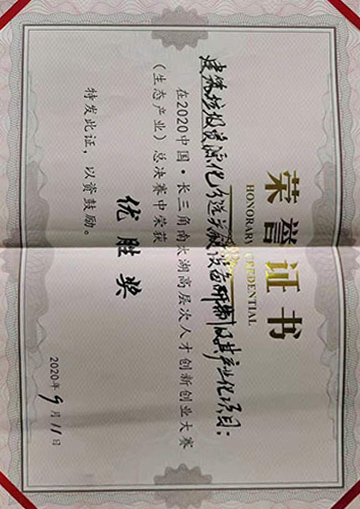 荣誉证书
HONORARY CREDENTIAL
建筑垃圾资源化分选关键设备研发及其产业化项目:
在2020中国·长三角南太湖高层次人才创新创业大赛
(生态产业)总决赛中荣获
优胜奖
特发此证,以资鼓励。
2020年9月11日